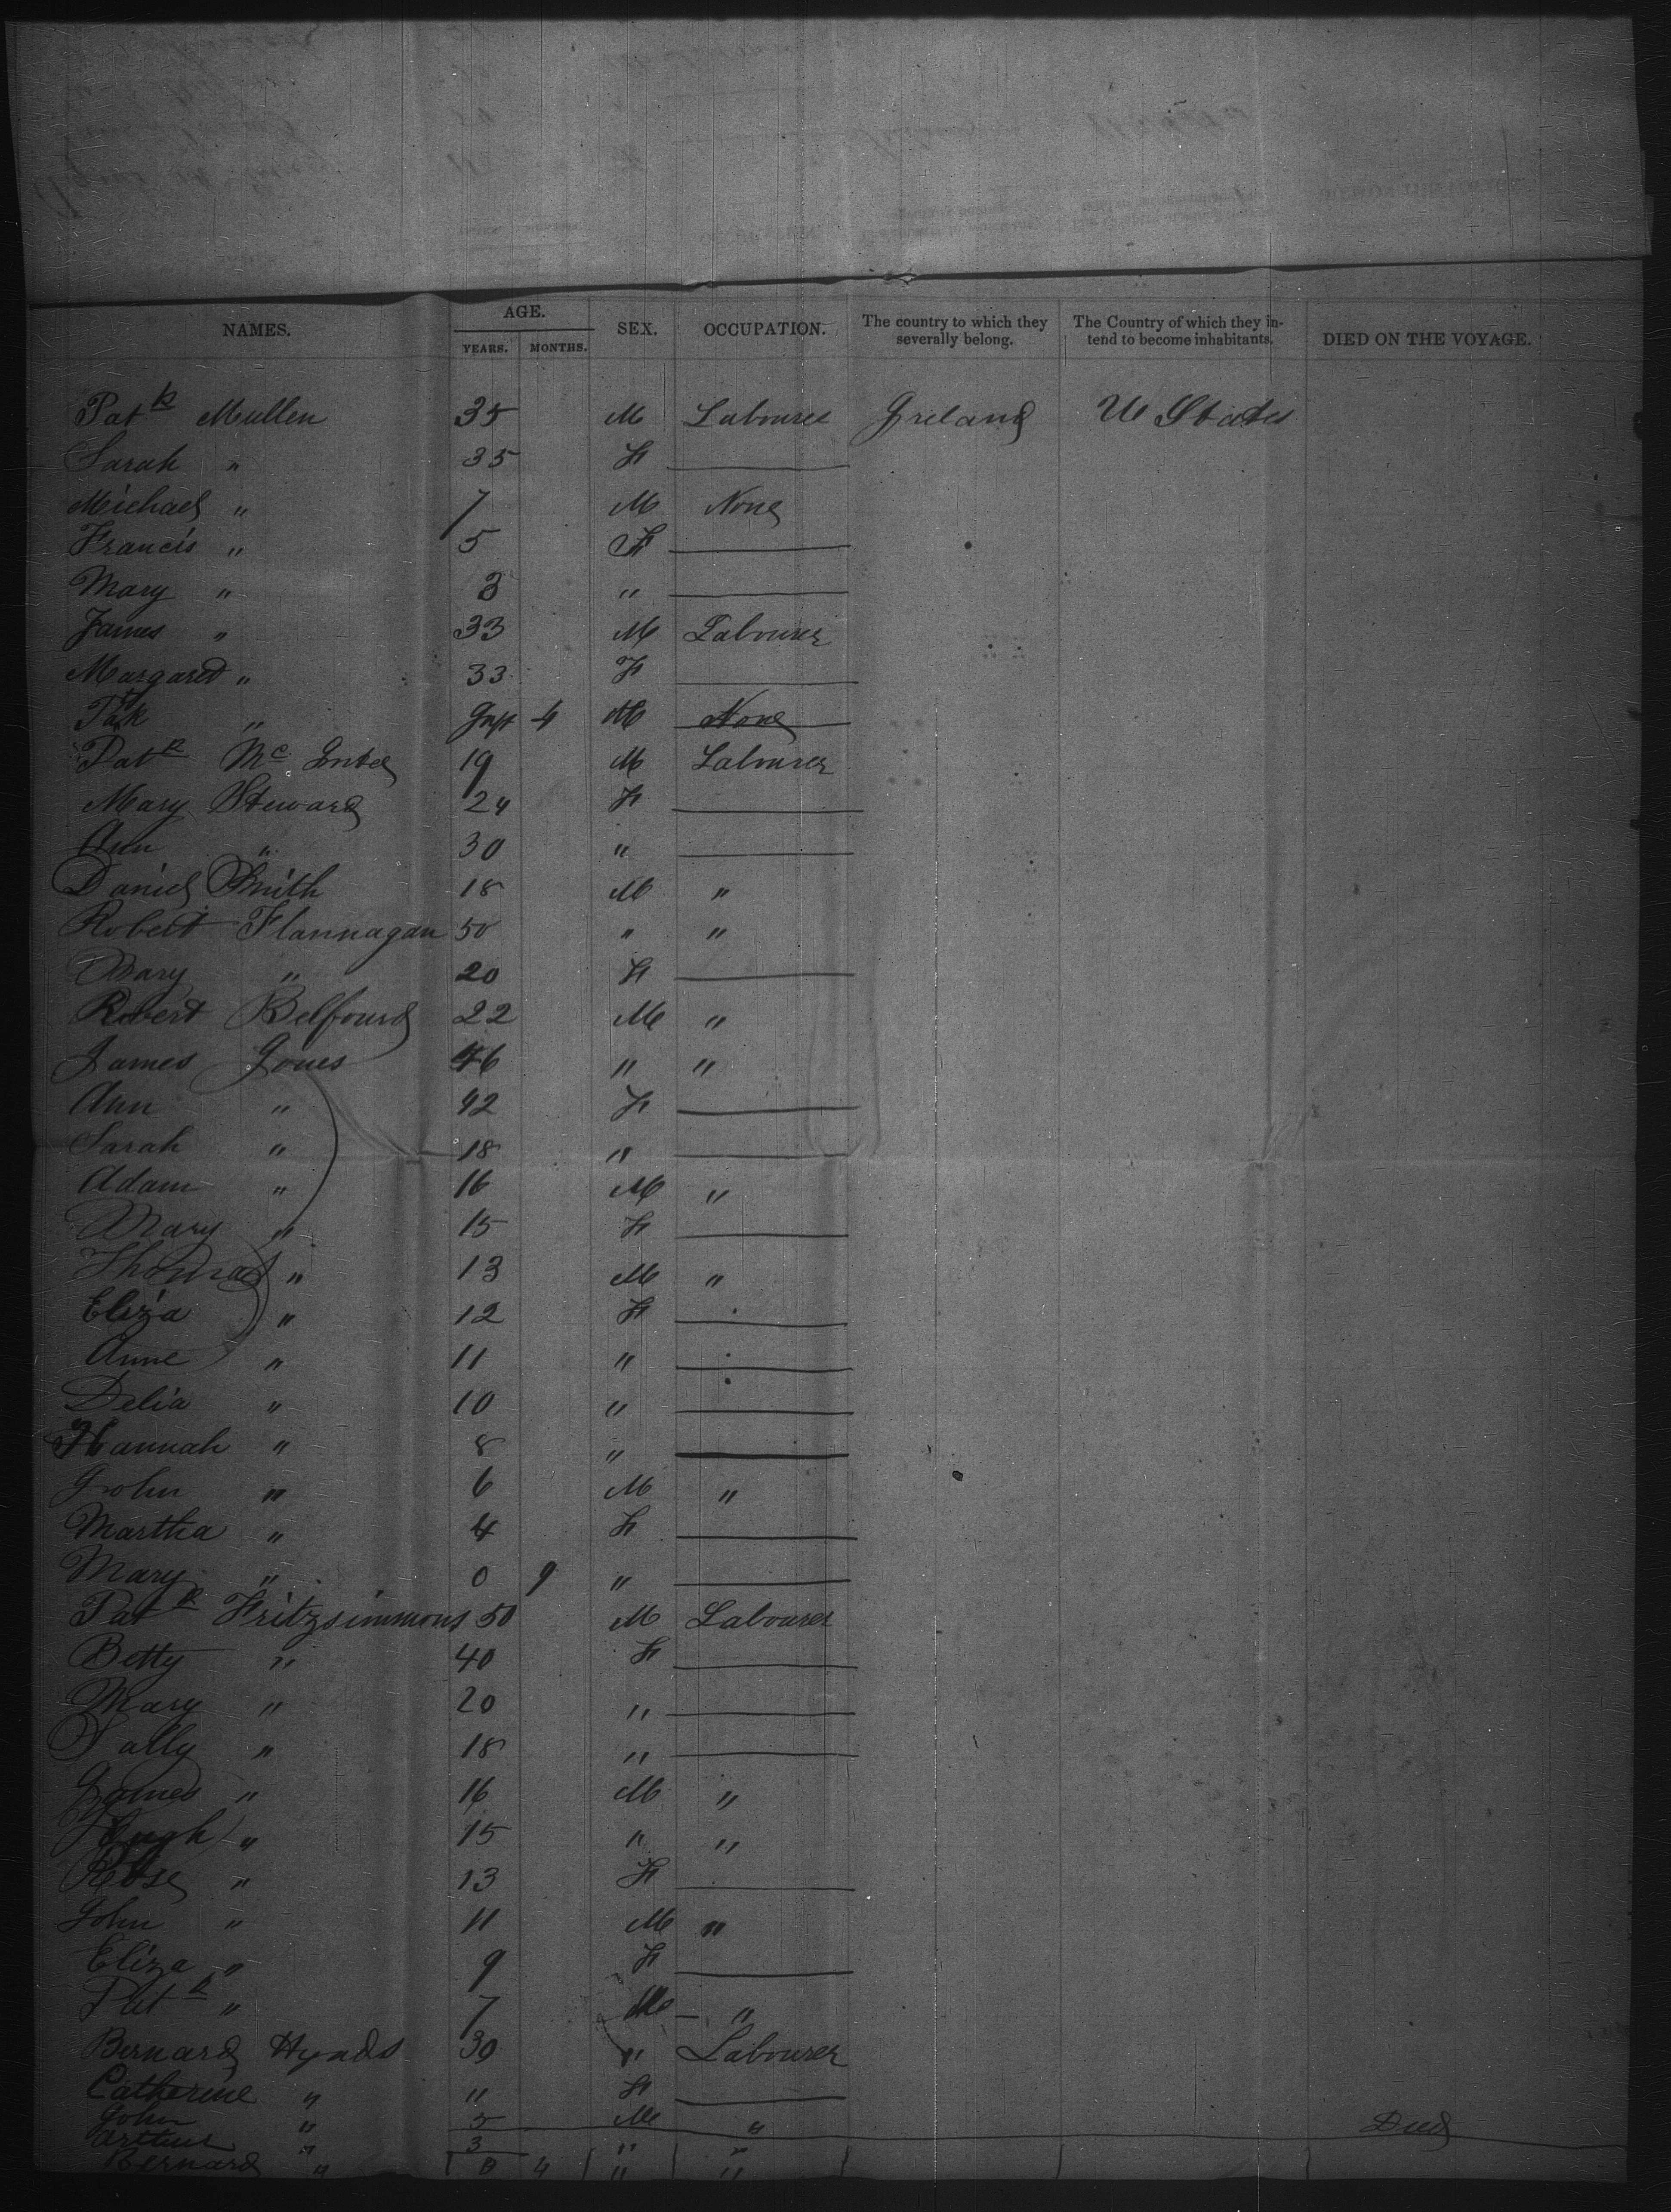 NAMES. AGE. SEX. OCCUPATION. The country to which they severally belong. The Country of which they intend to become inhabitants. DIED ON THE VOYAGE.
YEARS. MONTHS.
Patk Mullen 35 M Labourer Ireland U States
Sarah " 35 F
Michael " 7 M None
Francis " 5 F
Mary " 3 "
James " 33 M Labourer
Margaret " 33 F
Patk " Inft 4 M None
Patk Mc 19 M Labourer
Mary Steward 24 F
Ann " 30 "
Daniel Smith 18 M "
Robert Flannagan 50 " "
Mary " 20 F
Robert Belfourd 22 M "
James Jones 46 " "
Ann " 42 F
Sarah " 18 "
Adam " 16 M "
Mary " 15 F
Thomas " 13 M "
Eliza " 12 F
Anne " 11 "
Delia " 10 "
Hannah " 8 "
John " 6 M "
Martha " 4 F
Mary " 0 9 "
Patk Fritzsimmons 50 M Labourer
Betty " 40 F
Mary " 20 "
Sally " 18 "
James " 16 M "
Hugh " 15 " "
Rose " 13 F
John " 11 M "
Eliza " 9 F
Patk " 7 M "
Bernard Hynds 30 " Labourer
Catherine " " F
John " 5 M " Died
Arthur " 3 " "
Bernard " 0 4 " "